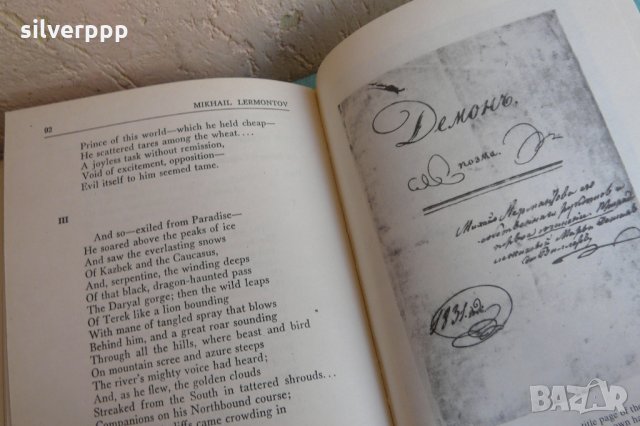 silverppp
92
MIKHAIL LERMONTOV
Prince of this world—which he held cheap—
He scattered tares among the wheat....
A joyless task without remission,
Void of excitement, opposition—
Evil itself to him seemed tame.
III
And so—exiled from Paradise—
He soared above the peaks of ice
And saw the everlasting snows
Of Kazbek and the Caucasus,
And, serpentine, the winding deeps
Of that black, dragon-haunted pass
The Daryal gorge; then the wild leaps
Of Terek like a lion bounding
With mane of tangled spray that blows
Behind him, and a great roar sounding
Through all the hills, where beast and bird
On mountain scree and azure steeps
The river's mighty voice had heard;
And, as he flew, the golden clouds
Streaked from the South in tattered shrouds...
Companions on his Northbound course;
cliffs came crowding in
Демонъ.
поэма.
1831. года
title page of the
BAZAR